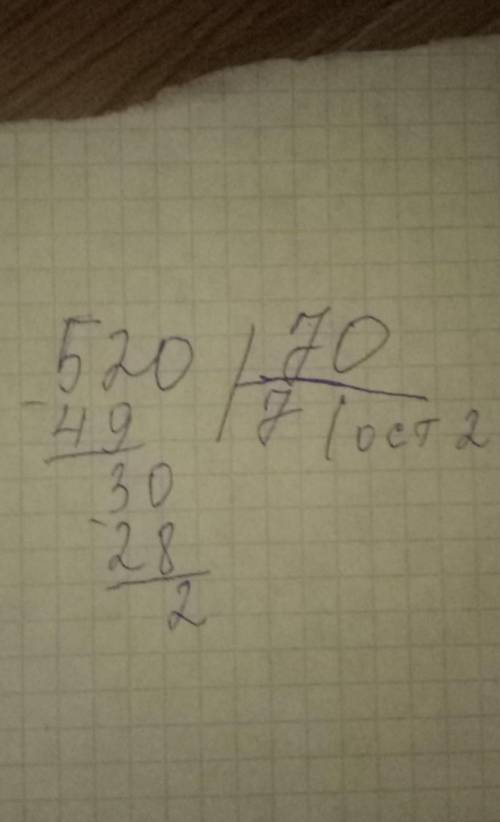 520 70
- 49 7 (ост 2
30
- 28
2